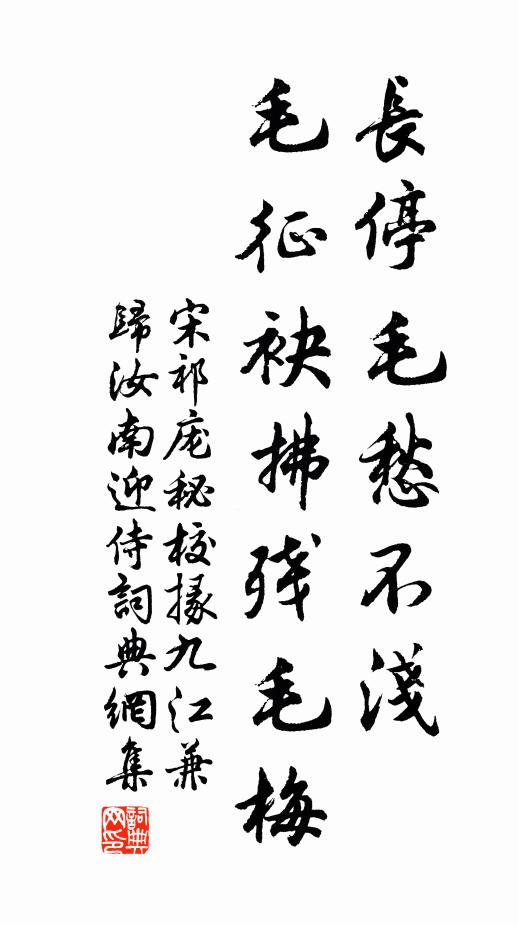 長停毛愁不淺
毛征袂拂殘毛梅
宋祁庞秘校掾九江兼
歸汝南迎侍詞典網集
詞典
网印